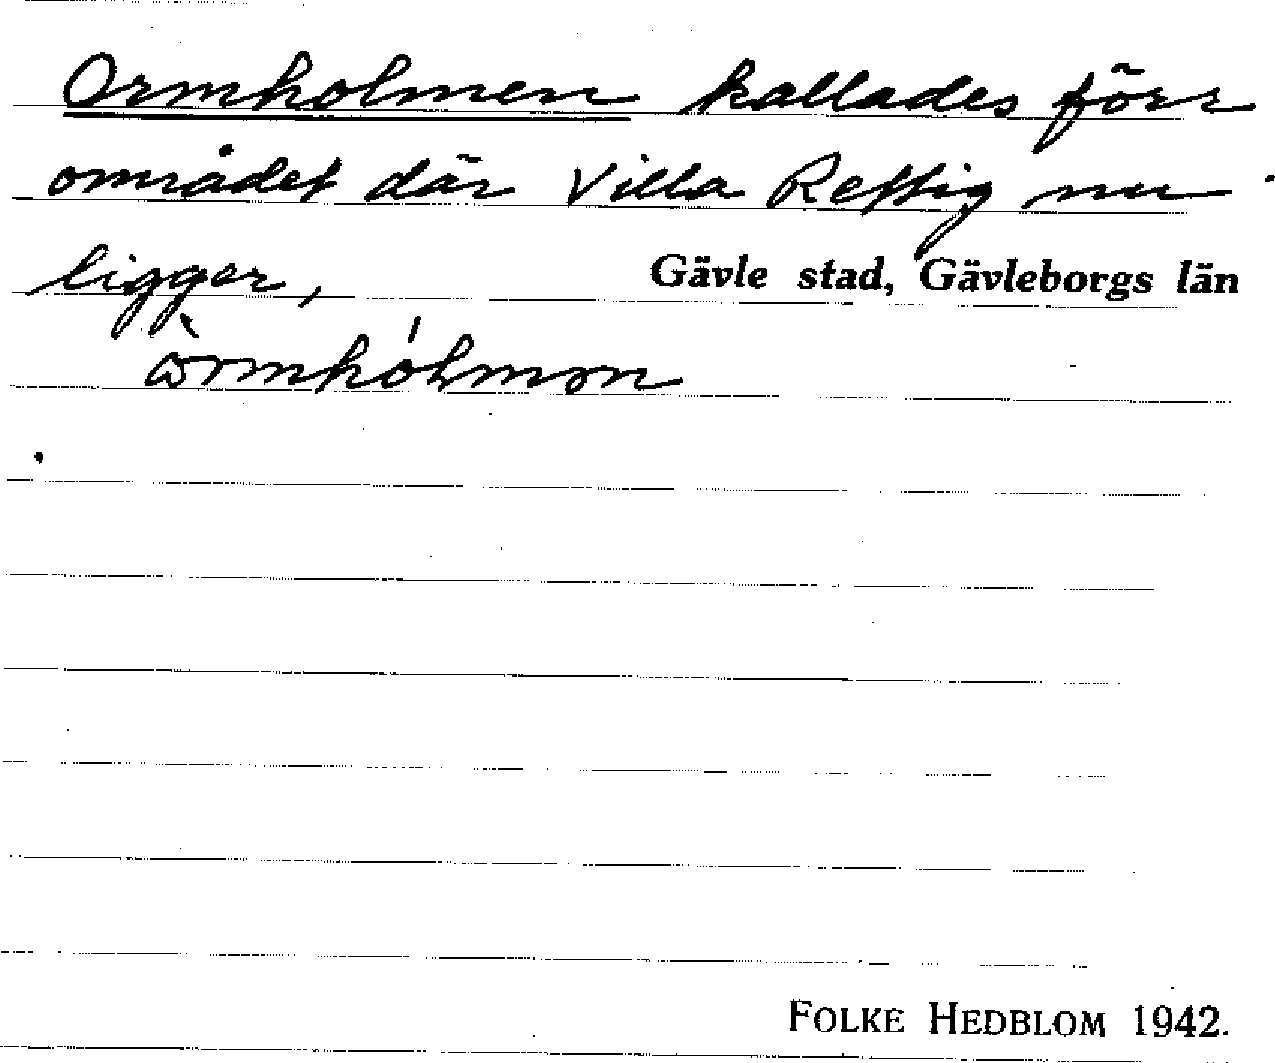 Ormholmen kallades förr
området där Villa Rettig nu
ligger, Gävle stad, Gävleborgs län
FOLKE HEDBLOM 1942.